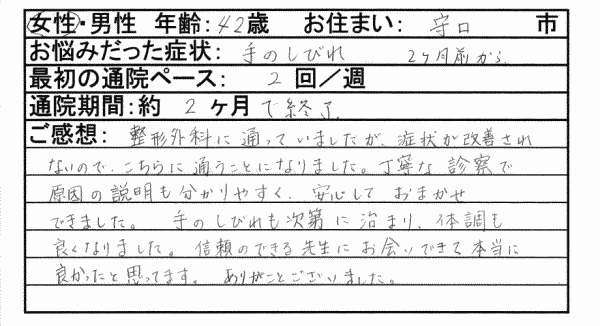 女性・男性 年齢:42歳 お住まい: 守口 市
お悩みだった症状: 手のしびれ 2ヶ月前から
最初の通院ペース: 2 回／週
通院期間:約 2 ヶ月で終了
ご感想: 整形外科に通っていましたが、症状が改善され
ないので、こちらに通うことになりました。丁寧な診察で
原因の説明も分かりやすく、安心しておまかせ
できました。 手のしびれも次第に治まり、体調も
良くなりました。信頼のできる先生にお会いできて本当に
良かったと思ってます。 ありがとございました。